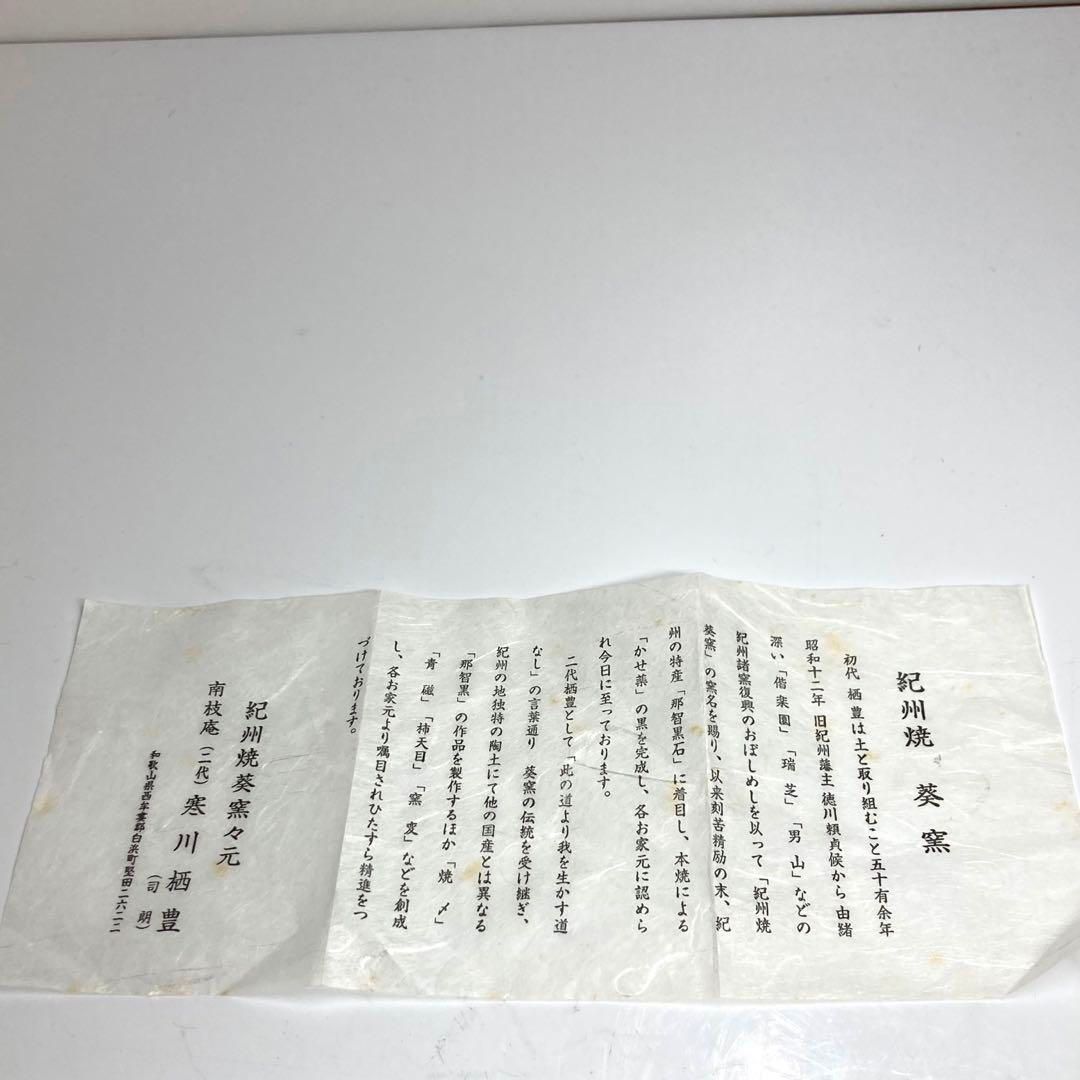 紀州焼 葵窯
初代 栖豊は土と取り組むこと五十有余年
昭和十二年 旧紀州藩主 徳川頼貞候から 由緒
深い「偕楽園」「瑞芝」「男山」などの
紀州諸窯復興のおぼしめしを以って「紀州焼
葵窯」の窯名を賜り、以来刻苦精励の末、紀
州の特産「那智黒石」に着目し、本焼による
「かせ薬」の黒を完成し、各お家元に認めら
れ今日に至っております。
二代栖豊として「此の道より我を生かす道
なし」の言葉通り 葵窯の伝統を受け継ぎ、
紀州の地独特の陶土にて他の国産とは異なる
「那智黒」の作品を製作するほか「焼〆」
「青磁」「柿天目」「窯変」などを創成
し、各お家元より嘱目されひたすら精進をつ
づけております。
紀州焼葵窯々元
南枝庵(二代)寒川栖豊
(司明)
和歌山県西牟婁郡白浜町堅田二六二二